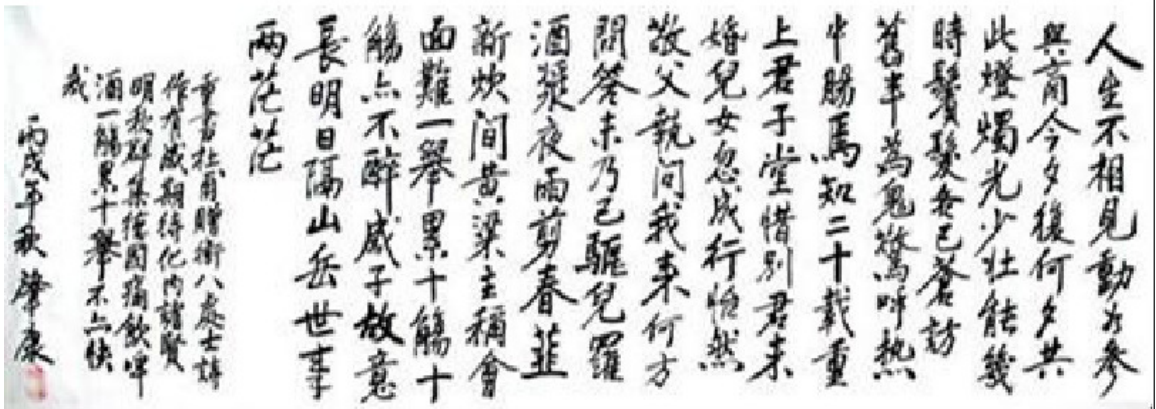 人生不相見動如參
與商今夕復何夕共
此燈燭光少壯能幾
時鬢髮各已蒼訪
舊半為鬼驚呼熱
中腸焉知二十載重
上君子堂惜別君未
婚兒女忽成行怡然
敬父執問我來何方
問答未乃已驅兒羅
酒漿夜雨剪春韮
新炊間黃粱主稱會
面難一舉累十觴十
觴亦不醉感子故意
長明日隔山岳世事
兩茫茫
重書杜甫贈衛八處士詩
作有感期待化內諸賢
明秋群集德國痛飲啤
酒一觴累十舉不亦快
哉
丙戌年秋肇康